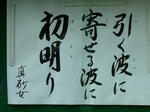 引く波に
寄せる波に
初明り
真砂女